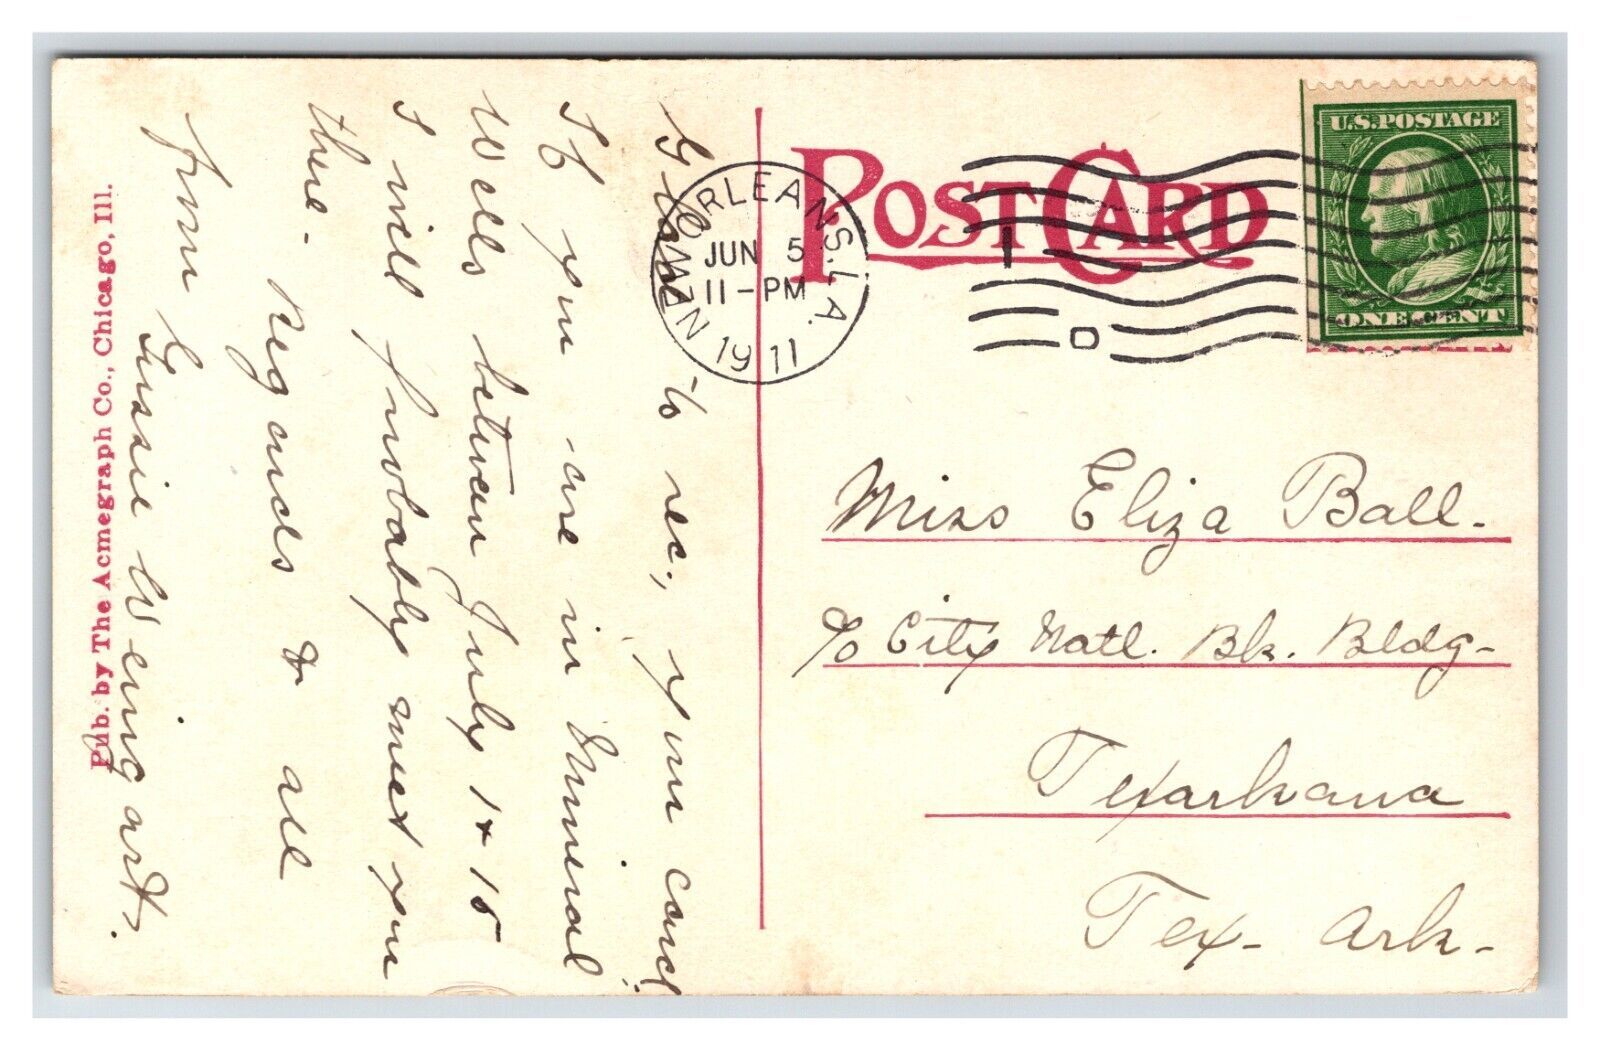 POST CARD
U.S.POSTAGE
ONE CENT
NEW ORLEANS. LA.
JUN 5
11-PM
1911
1
D
Glad to rec., your card.
If you are in Mineral
Wells between July 1 & 15
I will probably meet you
there. Regards to all
from Gussie Weingart.
Miss Eliza Ball.
c/o City Natl. Bk. Bldg-
Texarkana
Tex- Ark-
Pub. by The Acmegraph Co., Chicago, Ill.